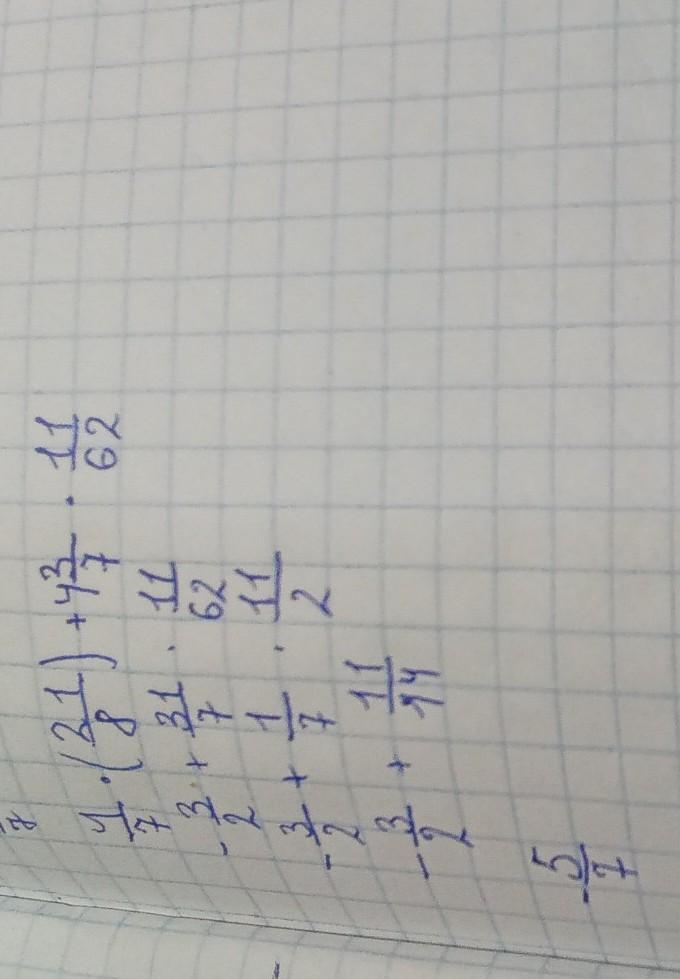 4/7 · (21/8) + 4 3/7 · 11/62
- 3/2 + 31/7 · 11/62
- 3/2 + 1/7 · 11/2
- 3/2 + 11/14
- 5/7